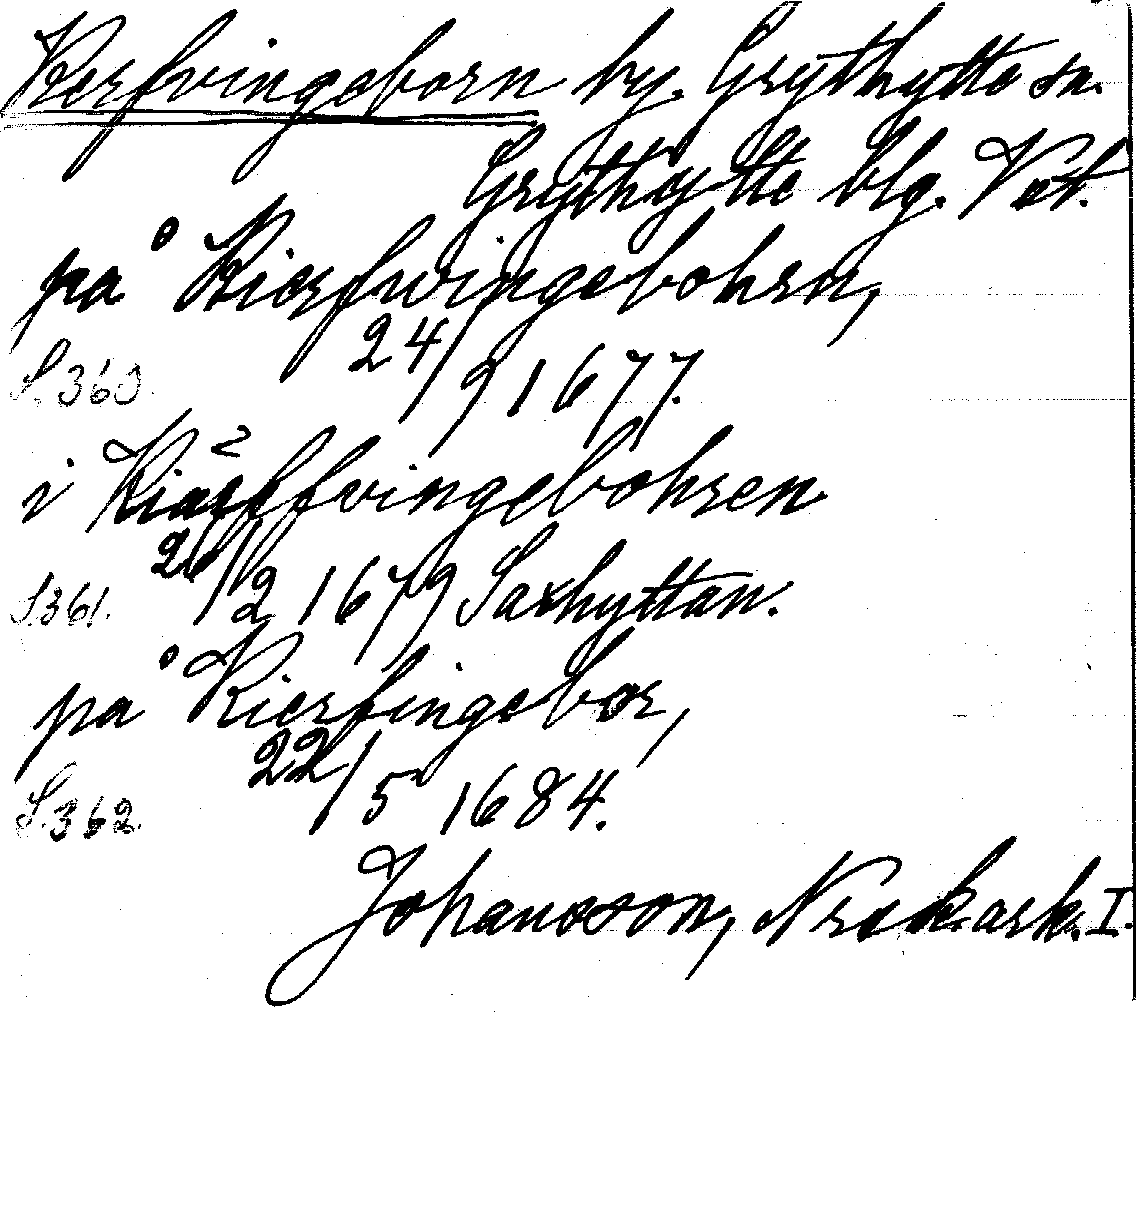 Kerfvingeborn by. Grythytte sn.
Grythytte blg. Vstl.
på Kierfwingebohrn,
24/9 1677.
S. 363.
i Kiärffvingebohren
26/2 1679 Saxhyttan.
S. 361.
på Kierfingebor,
22/5 1684.
S. 362.
Johansson, Nrsk ark. I.